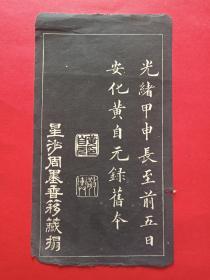 光緒甲申長至前五日
安化黃自元錄舊夲
星沙周墨香簃藏搨